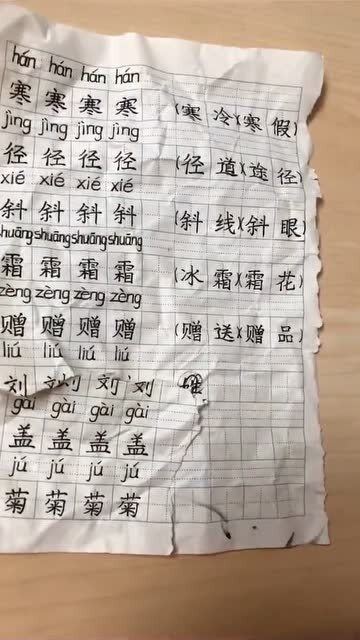 hán hán hán hán
寒 寒 寒 寒 (寒 冷)(寒 假)
jìng jìng jìng jìng
径 径 径 径 (径 道)(途 径)
xié xié xié xié
斜 斜 斜 斜 (斜 线)(斜 眼)
shuāng shuāng shuāng shuāng
霜 霜 霜 霜 (冰 霜)(霜 花)
zèng zèng zèng zèng
赠 赠 赠 赠 (赠 送)(赠 品)
liú liú liú
刘 刘 刘 刘
gài gài gài gài
盖 盖 盖 盖
jú jú jú jú
菊 菊 菊 菊